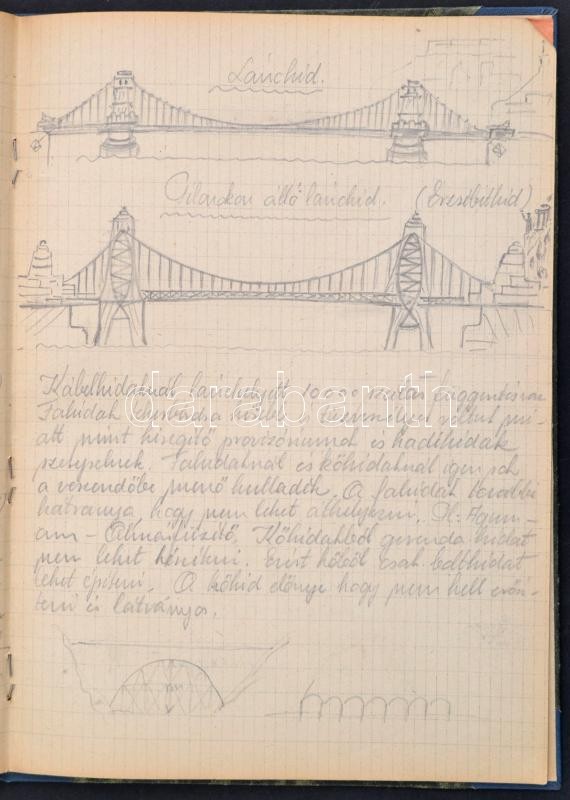 Lánchíd.
Pilonokon álló lánchíd. (Erzsébethíd)
Kábelhidaknál lánchelyett 10000 szálas függesztés van
Fahidak
att mint kisegítő provizóriumok és hadihidak
szerepelnek. Fahidaknál és kőhidaknál igen sok
a veszendőbe menő hulladék. A fahidak további
hátránya, hogy nem lehet áthelyezni. Pl.
Almásfüzitő. Kőhidakból gerenda hidat
nem lehet készíteni. Ezért kőből csak bolthidat
lehet építeni. A kőhíd előnye hogy nem kell erősí-
teni és látványos.
darabanth